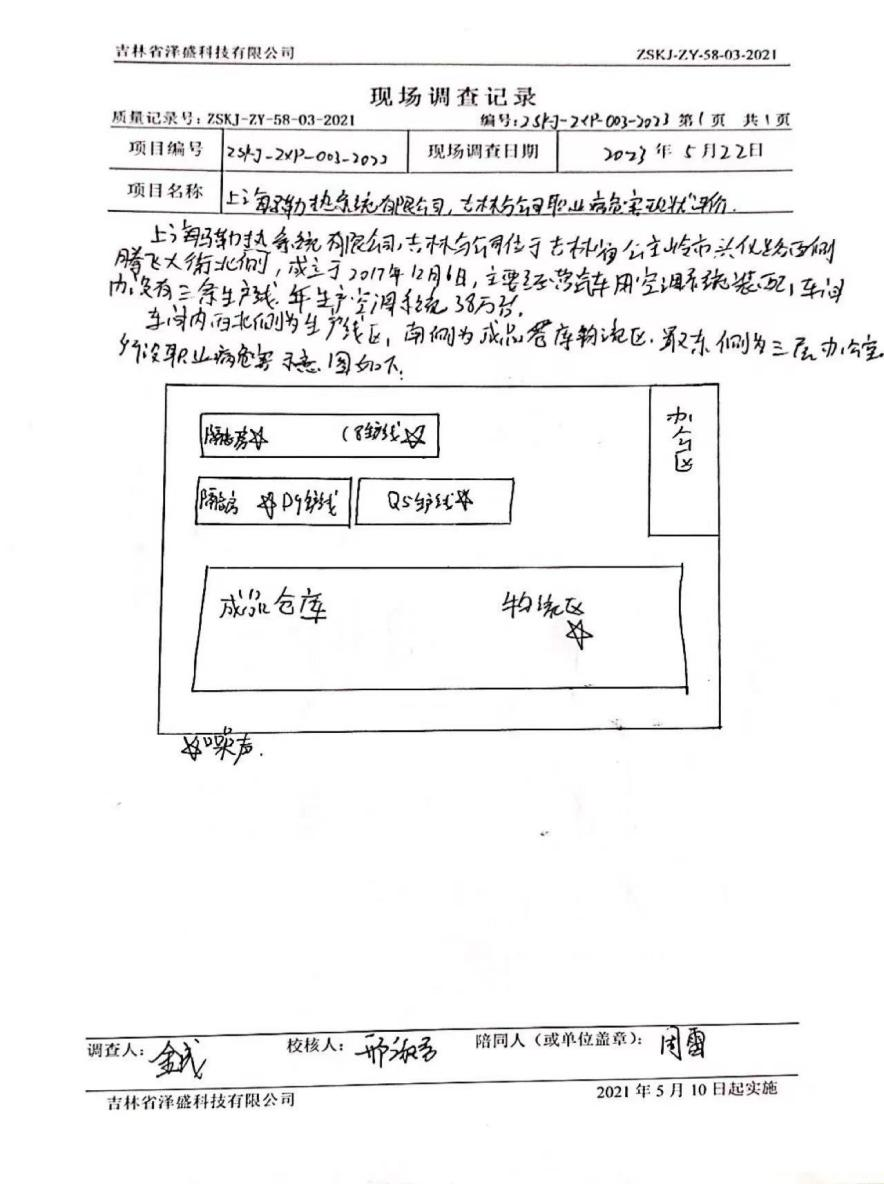 吉林省泽盛科技有限公司 ZSKJ-ZY-58-03-2021
现场调查记录
质量记录号：ZSKJ-ZY-58-03-2021 编号:ZSKJ-ZXP-003-2023 第1页 共1页
项目编号 ZSKJ-ZXP-003-2023 现场调查日期 2023年5月22日
项目名称 上海马勒热系统有限公司，吉林分公司职业病危害现状评价.
上海马勒热系统有限公司，吉林分公司位于吉林省公主岭市兴仪路西侧
腾飞大街北侧，成立于2017年12月6日，主要经营汽车用空调系统装配，车间
内设有三条生产线.年生产空调系统38万台.
车间内西北侧为生产线区，南侧为成品仓库物流区.最东侧为三层办公室.
职业病危害示意图如下:
隔音房☆ C8生产线☆
办公区
隔音房 ☆D9生产线 Q5生产线☆
成品仓库 物流区
☆
☆噪声.
调查人： 校核人： 陪同人（或单位盖章）：周雪
吉林省泽盛科技有限公司 2021年5月10日起实施